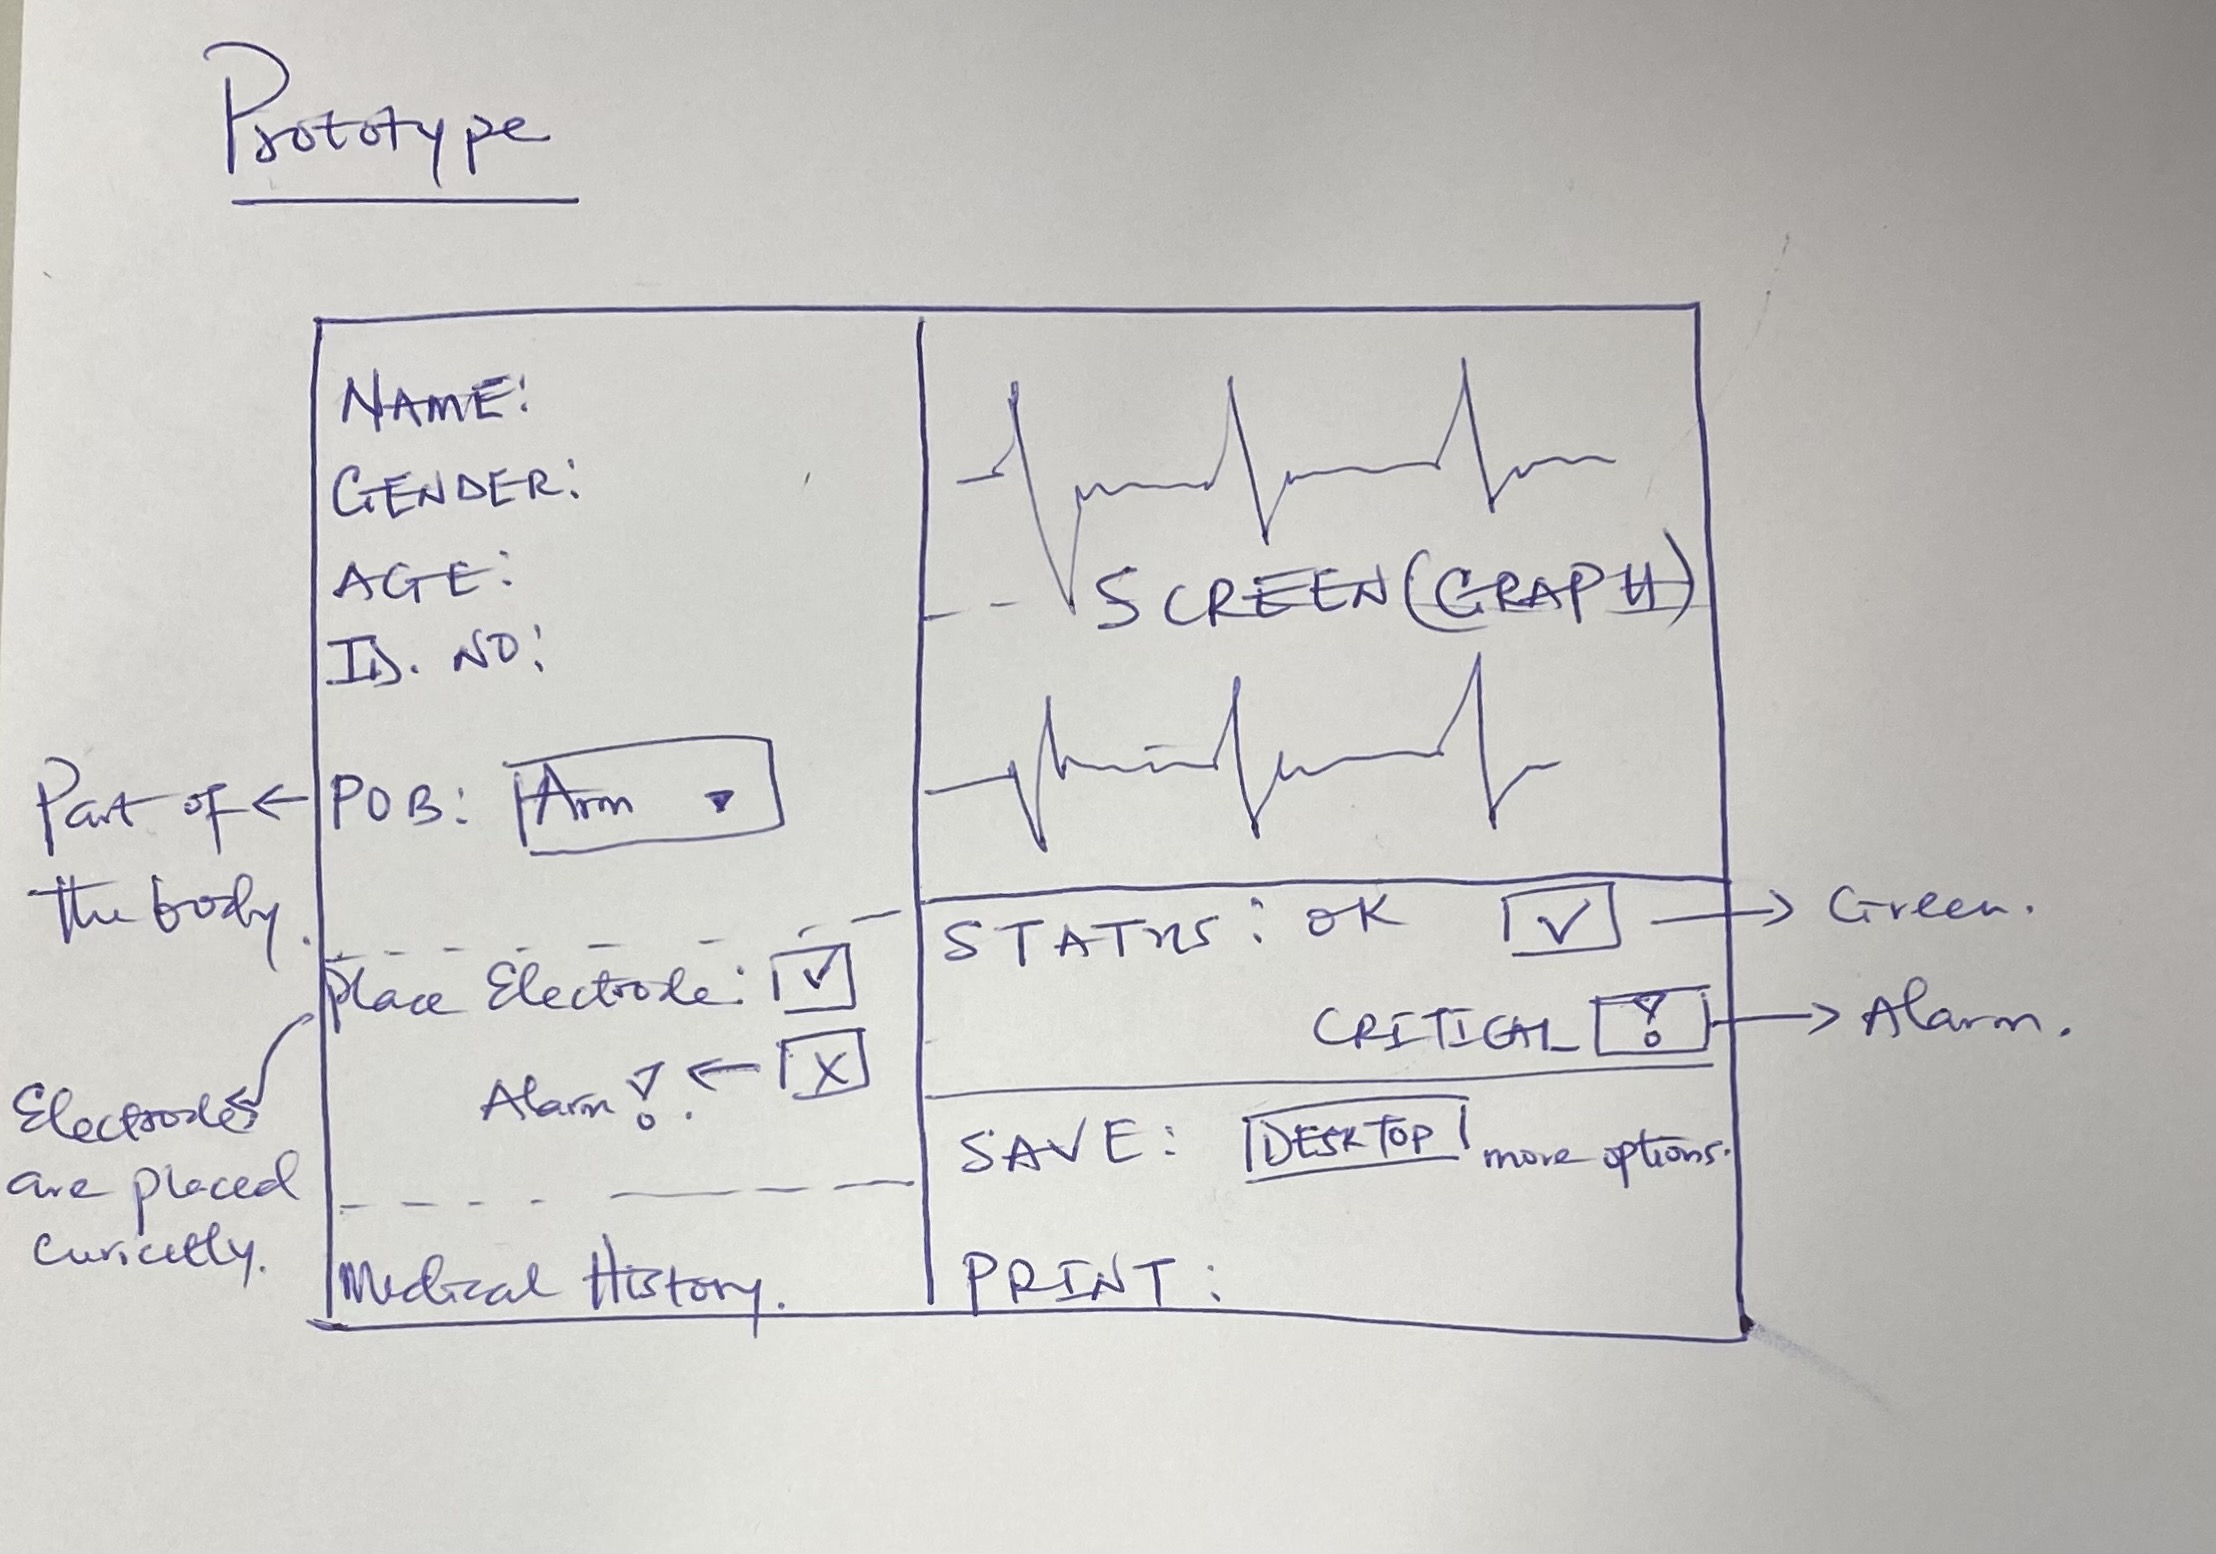 Prototype
NAME:
GENDER:
AGE:
ID. NO:
Part of
the body.
POB: Arm
Place Electrode:
Alarm!.
X
Electrodes
are placed
curicetly.
Medical History.
SCREEN (GRAPH)
STATUS: OK
Green.
CRITICAL !
Alarm.
SAVE: DESKTOP more options.
PRINT: